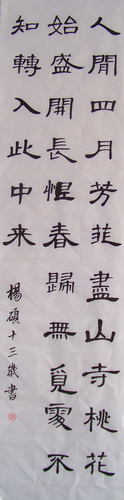 人閒四月芳菲盡山寺桃花
始盛開長恨春歸無覓處不
知轉入此中來
楊碩十三歲書